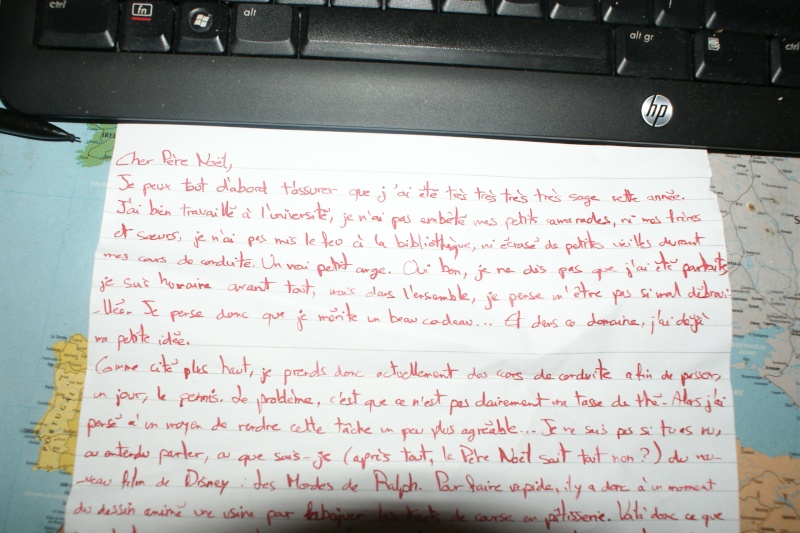 ctrl
fn
alt
alt gr
ctrl
hp
Cher Père Noël,
Je peux tout d'abord t'assurer que j'ai été très très très très sage cette année.
J'ai bien travaillé à l'université, je n'ai pas embêté mes petits camarades, ni mes frères
et sœurs, je n'ai pas mis le feu à la bibliothèque, ni écrasé de petites vieilles durant
mes cours de conduite. Un vrai petit ange. Oui bon, je ne dis pas que j'ai été parfaite,
je suis humaine avant tout, mais dans l'ensemble, je pense m'être pas si mal débroui-
-llée. Je pense donc que je mérite un beau cadeau... Et dans ce domaine, j'ai déjà
ma petite idée.
Comme cité plus haut, je prends donc actuellement des cours de conduite afin de passer,
un jour, le permis. Le problème, c'est que ce n'est pas clairement ma tasse de thé. Alors j'ai
pensé à un moyen de rendre cette tâche un peu plus agréable... Je ne sais pas si tu as vu,
ou entendu parler, ou que sais-je (après tout, le Père Noël sait tout non?) du nou-
-veau film de Disney : les Mondes de Ralph. Pour faire rapide, il y a donc à un moment
du dessin animé une usine pour fabriquer les karts de course en pâtisserie. Voilà donc ce que
PORTUGAL